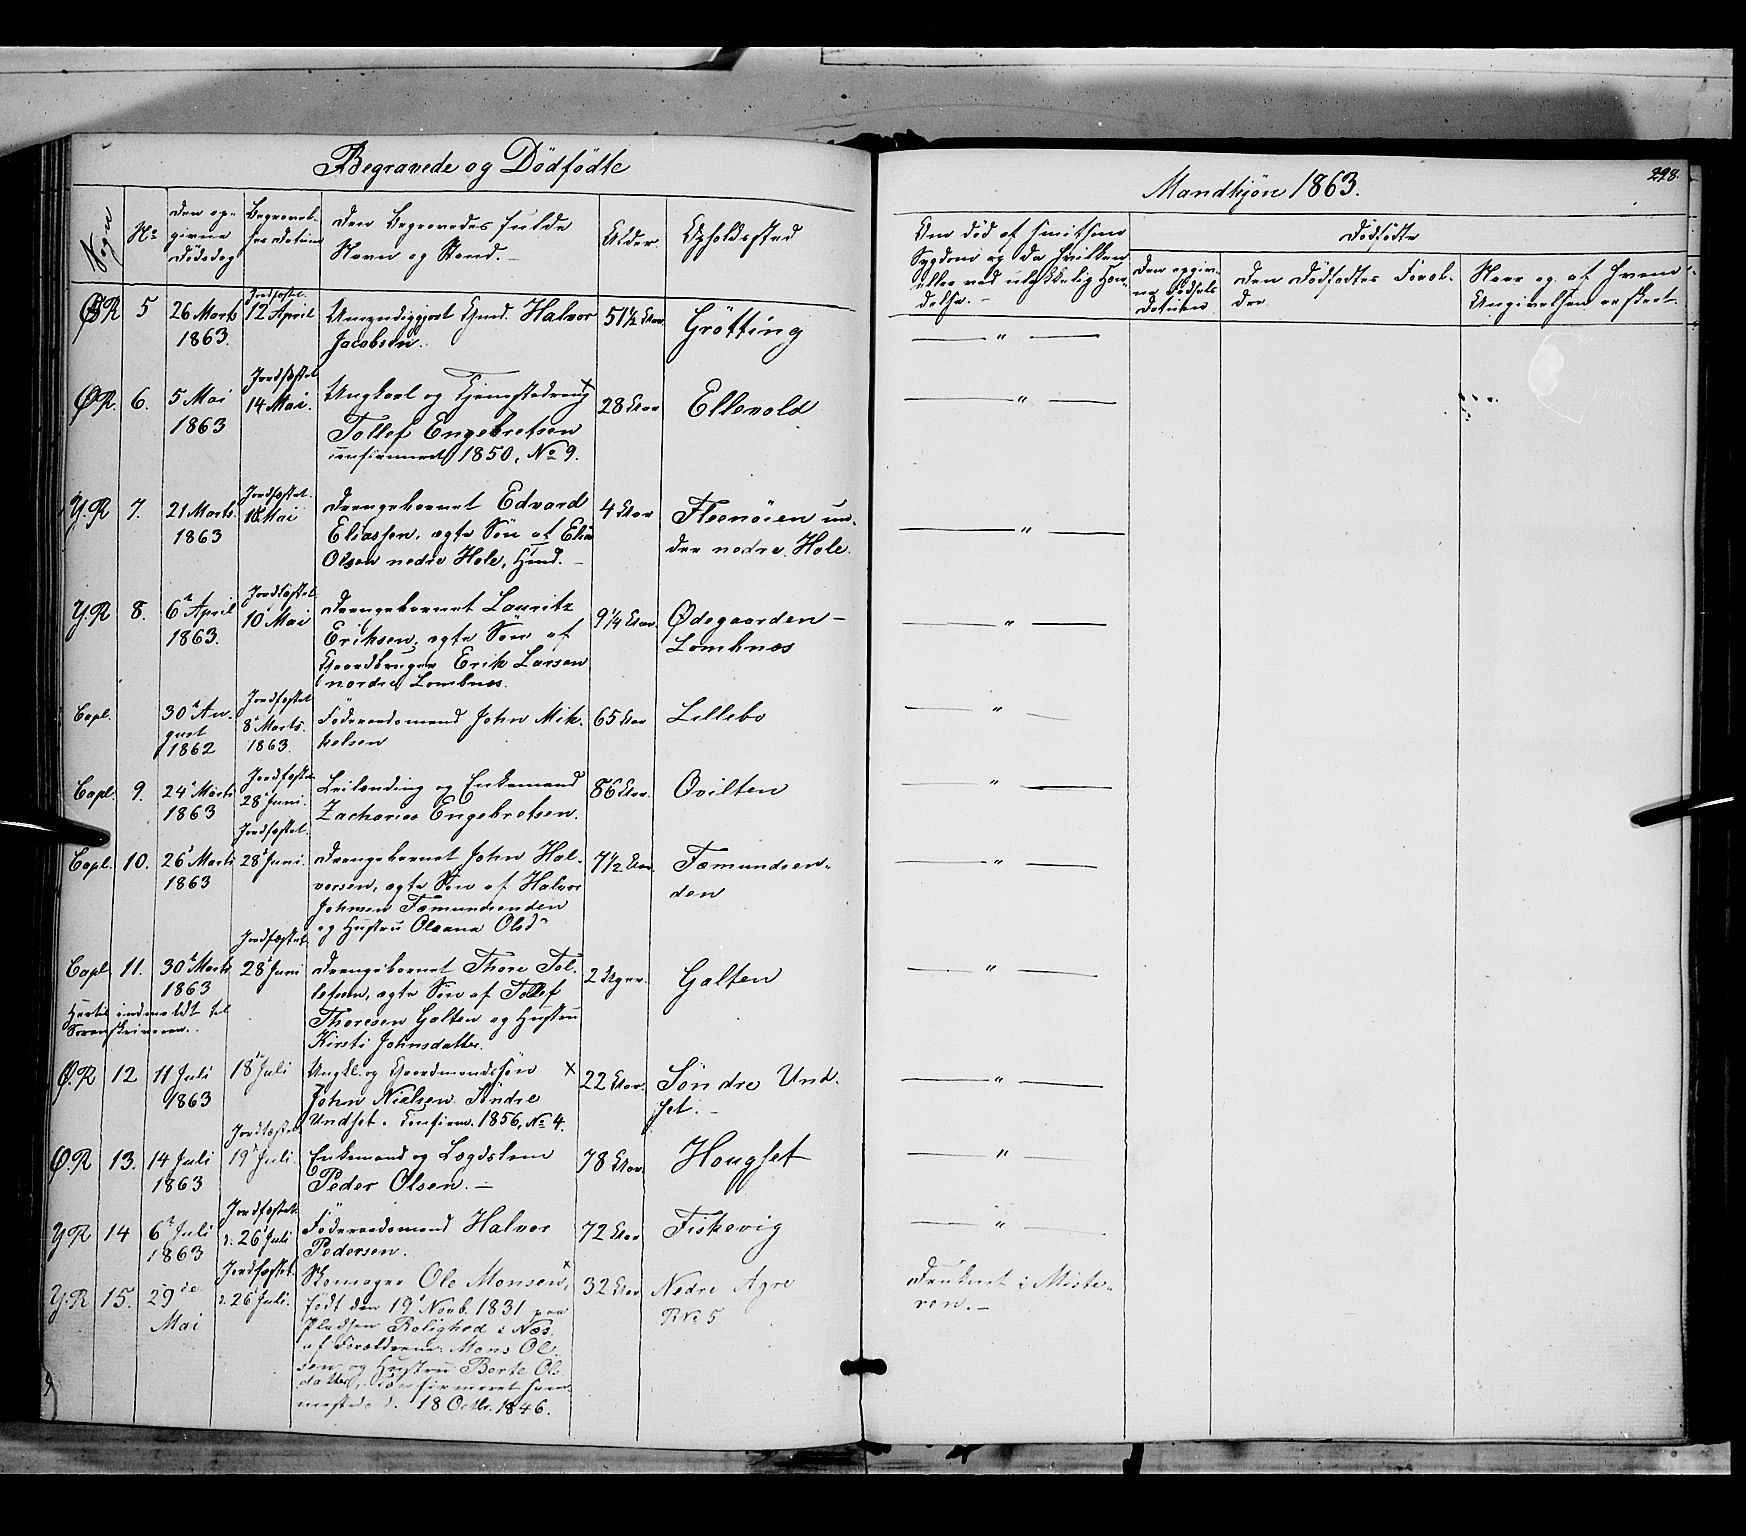 Begravede og Dødfødte
Mandkjøn 1863.
298.
Sogn
No
Den op-
givne
Dødsdag
Begravel-
ses Datum
Den Begravedes fulde
Navn og Stand.
Alder
Opholdssted
Om død af smitsom
Sygdom og da hvilken
eller ved ulykkelig Hæn-
delse.
Dødfødte
Den opgiv-
ne Dødfels
Datum
Den Dødfødtes Foræl-
dre
Naar og af hvem
Angivelsen er skeet.
Ø R 5 26 Marts 1863. Jordfæstet 12 April
Umyndiggjort Hmd. Halvor
Jacobsen.
51½ Aar
Grötting
— " —
Ø R. 6. 5 Mai 1863 Jordfæstet 14 Mai.
Ungkarl og Tjenestedreng
Tollef Engebretsen
confirmeret 1850, No 9.
28 Aar
Ellevold
— " —
Y. R 7. 21 Marts. 1863 Jordfæstet. 10 Mai
Drengebarnet Edvard
Eliassen, ægte Søn af Elias
Olsen nedre Hole, Hmd.
4 Aar
Fleenøien un-
der nedre Hole.
— " —
Y. R 8. 6 April 1863. Jordfæstet 10 Mai
Drengebarnet Lauritz
Eriksen, ægte Søn af
Gaardbruger Erik Larsen
nordre Lombnæs.
9¼ Aar.
Ødegaarden
Lombnæs
— " —
Capl. 30 Au-
gust
1862
Jordfæstet
8 Marts.
1863.
Föderaadsmand John Mik-
kelsen
65 Aar
Lillebo
— " —
Capl. 9. 24 Marts 1863 Jordfæstet 28 Juni.
Leilending og Enkemand
Zacharias Engebretsen.
86 Aar.
Qvilten
— " —
Capl. 10. 26 Marts 1863 Jordfæstet. 28 Juni.
Drengebarnet John Hal-
vorsen, ægte Søn af Halvor
Johnsen Fæmundsenden
og Hustru Oleana Olsd
7½ Aar.
Fæmundsen-
den
— " —
Capl 11. 30 Marts 1863 Jordfæstet 28 Juni
Hertil indmeldt til
Sorenskriveren.
Drengebarnet Thore Tol-
lefsen, ægte Søn af Tollef
Thoresen Galten og Hustru
Kirsti Johnsdatter.
2 Uger.
Galten
— " —
Ø. R 12 11 Juli 1863 18 Juli
Ungk. og Gaardmandssön
John Nielsen Söndre
Undset. Confirm. 1856, No 4.
22 Aar.
Söndre Und-
set.
— " —
Ø. R 13. 14 Juli 1863 Jordfæstet 19 Juli.
Enkemand og Lægdslem
Peder Olsen.
78 Aar
Hougset
— " —
Y R 14 6 Juli 1863 Jordfæstet. d. 26 Juli
Föderaadsmand Halvor
Pedersen.
72 Aar
Fiskevig
— " —
Y. R 15. 29de Mai Jordfæstet. d. 26 Juli.
Skomager Ole Monsen,
født den 19 Novb. 1831 paa
Pladsen Rolighed i Næs
af Forældrene: Mons Ol-
sen og Hustru Berte Ols-
datter, confirmeret sam-
mesteds d. 18 Octbr. 1846.
32 Aar
Nedre Agre
R No 5
Druknet i Miste-
ren.